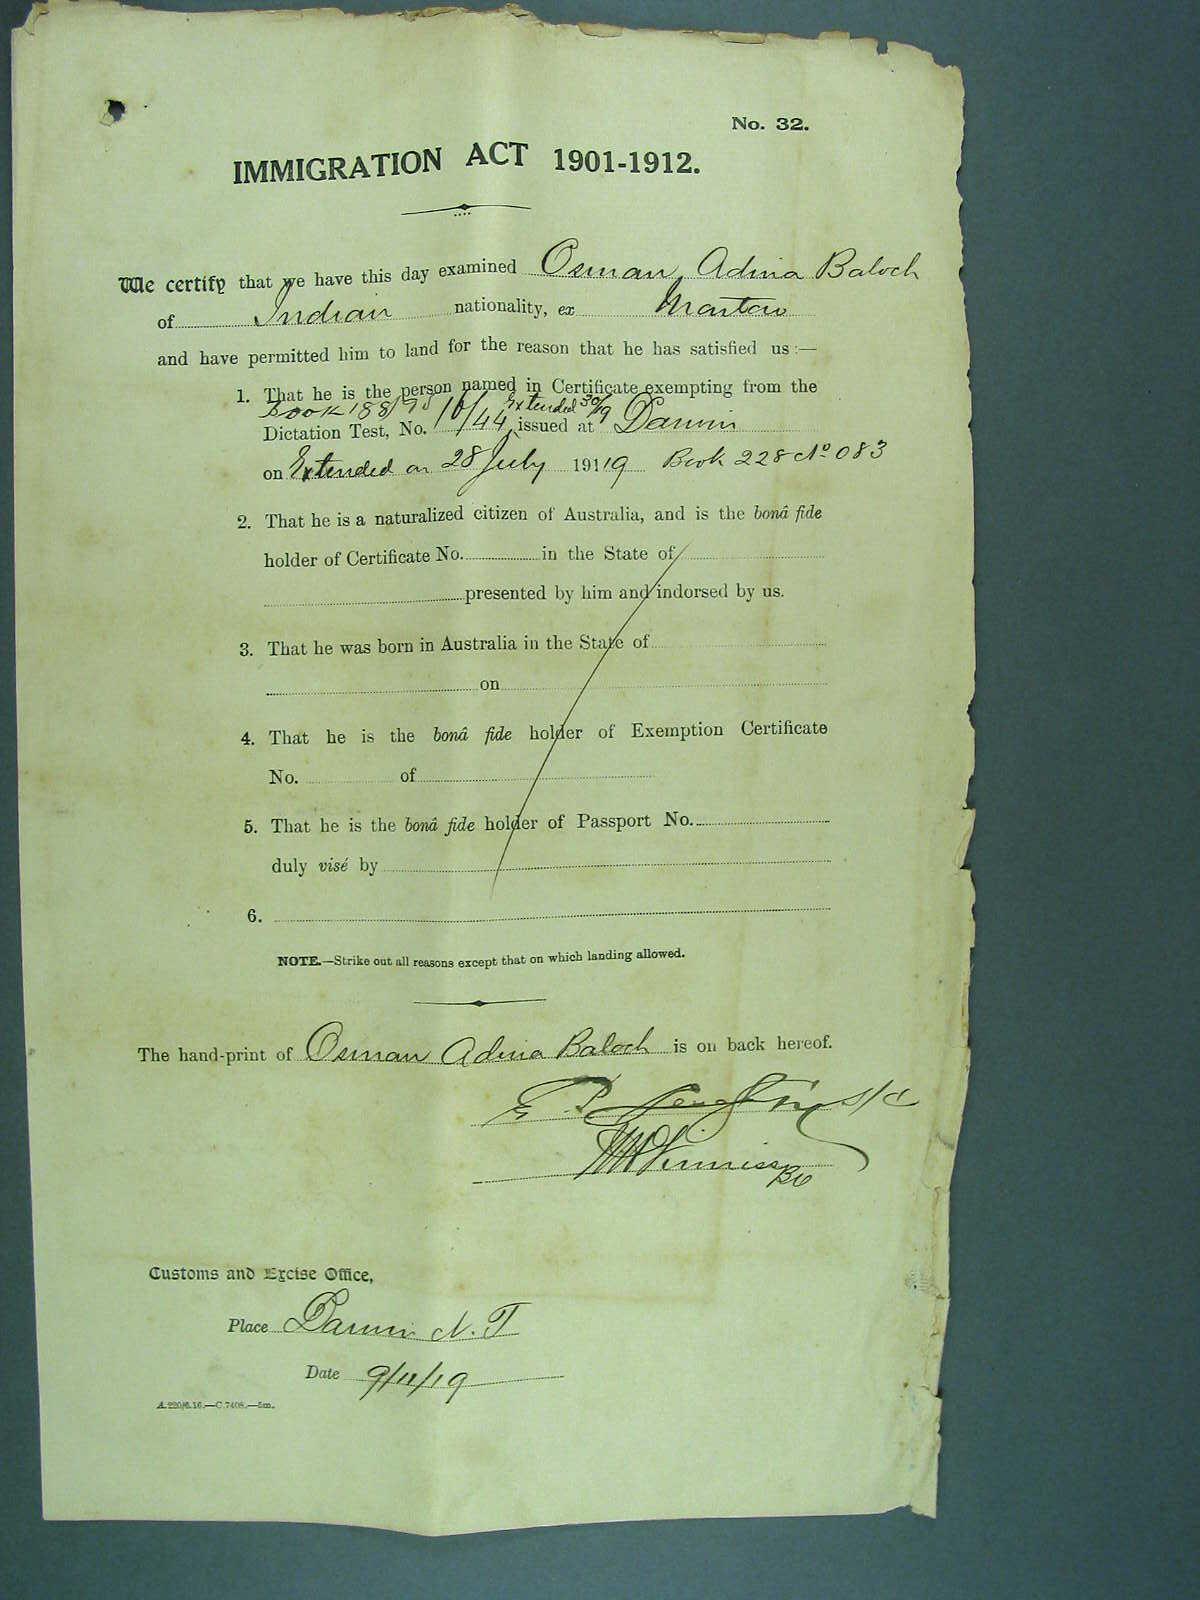 No. 32.
IMMIGRATION ACT 1901-1912.
We certify that we have this day examined Osman Adina Baloch
of Indian nationality, ex Mataro
and have permitted him to land for the reason that he has satisfied us :—
1. That he is the person named in Certificate exempting from the
Book 188/95 Extended 30/9
Dictation Test, No. 16/44 issued at Darwin
on Extended on 28 July 19119 Book 228 No 083
2. That he is a naturalized citizen of Australia, and is the bonâ fide
holder of Certificate No. in the State of
presented by him and indorsed by us.
3. That he was born in Australia in the State of
on
4. That he is the bonâ fide holder of Exemption Certificate
No. of
5. That he is the bonâ fide holder of Passport No.
duly visé by
6.
NOTE.—Strike out all reasons except that on which landing allowed.
The hand-print of Osman Adina Baloch is on back hereof.
Customs and Excise Office,
Place Darwin N.T
Date 9/11/19
A.220/6.16.—C.7408.—5m.